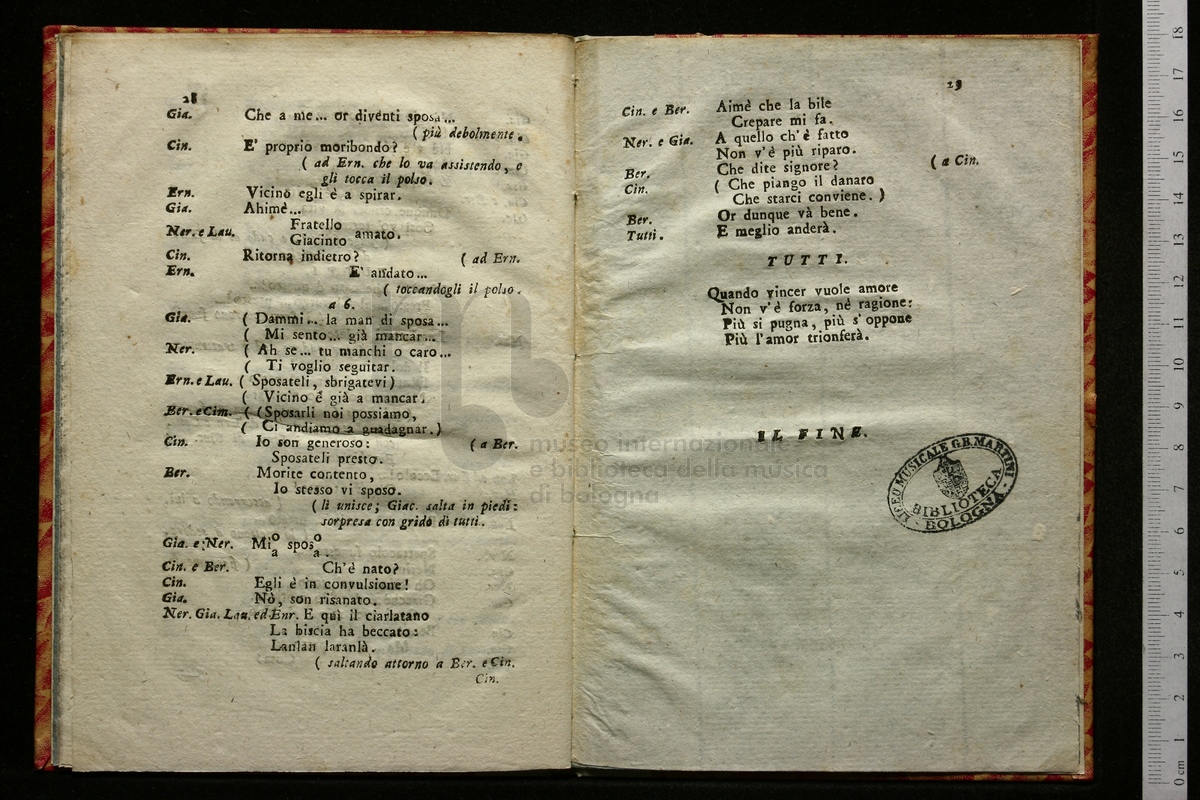 28
Gia. Che a me... or diventi sposa...
( più debolmente.
Cin. E' proprio moribondo?
( ad Ern. che lo va assistendo, e
gli tocca il polso.
Ern. Vicino egli è a spirar.
Gia. Ahimè...
Ner. e Lau. Fratello
Giacinto amato.
Cin. Ritorna indietro? ( ad Ern.
Ern. E' andato...
( toccandogli il polso.
a 6.
Gia. ( Dammi... la man di sposa...
( Mi sento... già mancar...
Ner. ( Ah se... tu manchi o caro...
( Ti voglio seguitar.
Ern. e Lau. ( Sposateli, sbrigatevi)
( Vicino é già a mancar.
Ber. e Cim. ( (Sposarli noi possiamo,
( Ci andiamo a guadagnar.)
Cin. Io son generoso: ( a Ber.
Sposateli presto.
Ber. Morite contento,
Io stesso vi sposo.
( li unisce; Giac. salta in piedi:
sorpresa con grido di tutti.
Gia. e Ner. Mi o a spos o a.
Cin. e Ber. Ch'è nato?
Cin. Egli è in convulsione!
Gia. Nò, son risanato.
Ner. Gia. Lau. ed Enr. E quì il ciarlatano
La biscia ha beccato:
Lanlan laranlà.
( saltando attorno a Ber. e Cin.
Cin.
29
Cin. e Ber. Aimè che la bile
Crepare mi fa.
Ner. e Gia. A quello ch'è fatto
Non v'è più riparo.
Ber. Che dite signore? ( a Cin.
Cin. ( Che piango il danaro
Che starci conviene. )
Ber. Or dunque và bene.
Tutti. E meglio anderà.
TUTTI.
Quando vincer vuole amore
Non v'è forza, nè ragione:
Più si pugna, più s'oppone
Più l'amor trionferà.
IL FINE.
LICEO MUSICALE G.B. MARTINI
BIBLIOTECA
BOLOGNA
museo internazionale
e biblioteca della musica
di bologna
0 cm 1 2 3 4 5 6 7 8 9 10 11 12 13 14 15 16 17 18